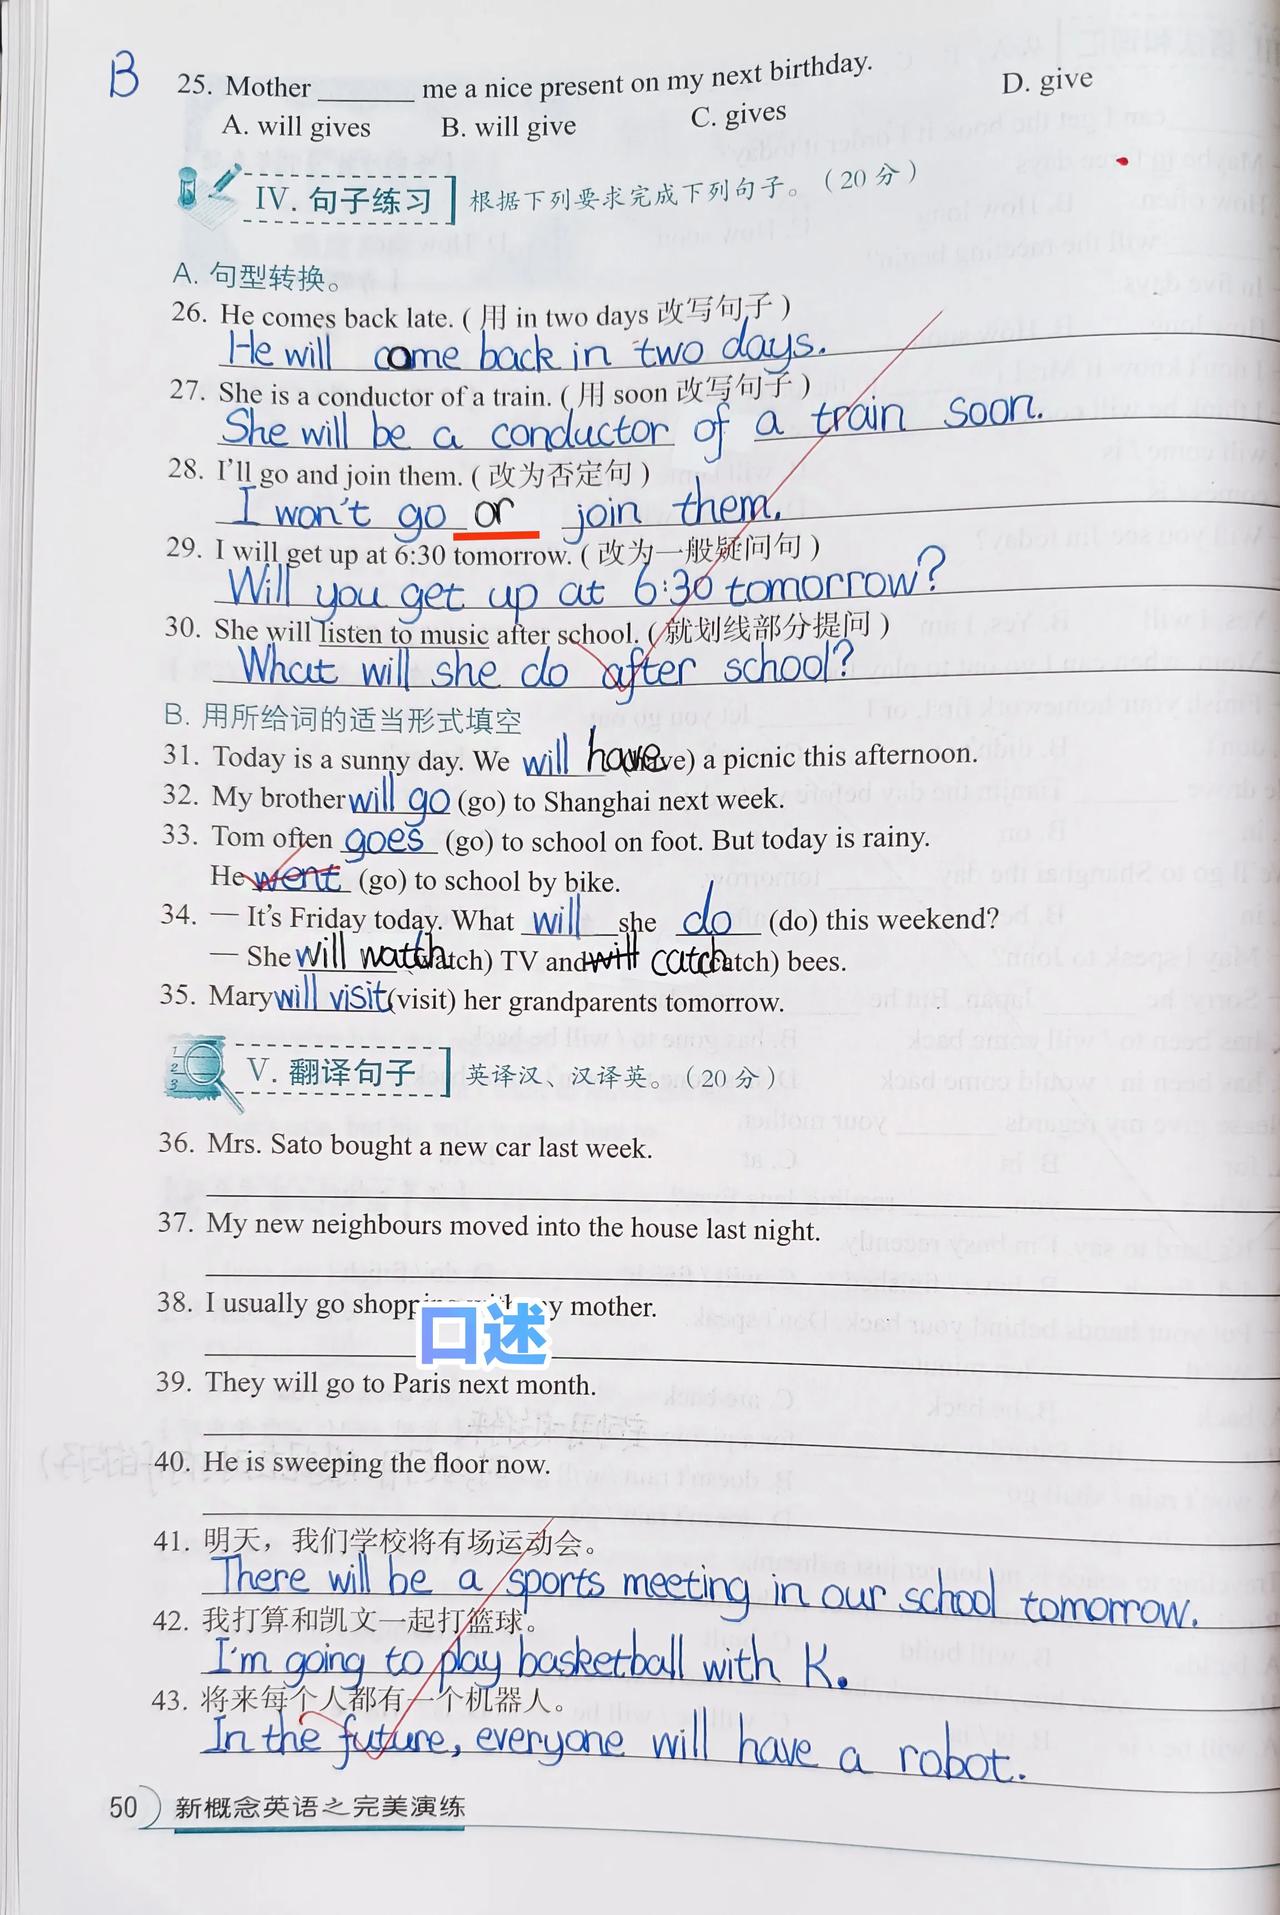 B 25. Mother ______ me a nice present on my next birthday.
A. will gives B. will give C. gives D. give
IV. 句子练习 根据下列要求完成下列句子。（20 分）
A. 句型转换。
26. He comes back late. ( 用 in two days 改写句子 )
He will come back in two days.
27. She is a conductor of a train. ( 用 soon 改写句子 )
She will be a conductor of a train soon.
28. I'll go and join them. ( 改为否定句 )
I won't go or join them.
29. I will get up at 6:30 tomorrow. ( 改为一般疑问句 )
Will you get up at 6:30 tomorrow?
30. She will listen to music after school. ( 就划线部分提问 )
What will she do after school?
B. 用所给词的适当形式填空
31. Today is a sunny day. We will have (have) a picnic this afternoon.
32. My brother will go (go) to Shanghai next week.
33. Tom often goes (go) to school on foot. But today is rainy.
He went (go) to school by bike.
34. — It's Friday today. What will she do (do) this weekend?
— She will watch (watch) TV and will catch (catch) bees.
35. Mary will visit (visit) her grandparents tomorrow.
V. 翻译句子 英译汉、汉译英。（20 分）
36. Mrs. Sato bought a new car last week.
37. My new neighbours moved into the house last night.
38. I usually go shopping with my mother.
口述
39. They will go to Paris next month.
40. He is sweeping the floor now.
41. 明天，我们学校将有场运动会。
There will be a sports meeting in our school tomorrow.
42. 我打算和凯文一起打篮球。
I'm going to play basketball with K.
43. 将来每个人都有一个机器人。
In the future, everyone will have a robot.
50 新概念英语之完美演练